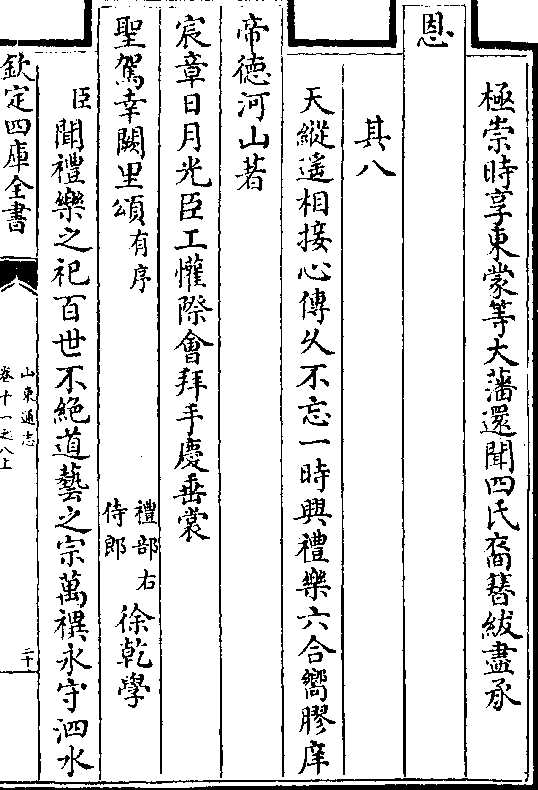 極崇時享東蒙等大藩還聞四氏裔簪紱盡承
恩
其八
天縱遙相接心傳久不忘一時興禮樂六合嚮膠庠
帝德河山著
宸章日月光臣工懽際會拜手慶垂裳
聖駕幸闕里頌有序 禮部右侍郎徐乾學
臣聞禮樂之祀百世不絶道藝之宗萬禩永守泗水
欽定四庫全書
山東通志
卷十一之八上
二十